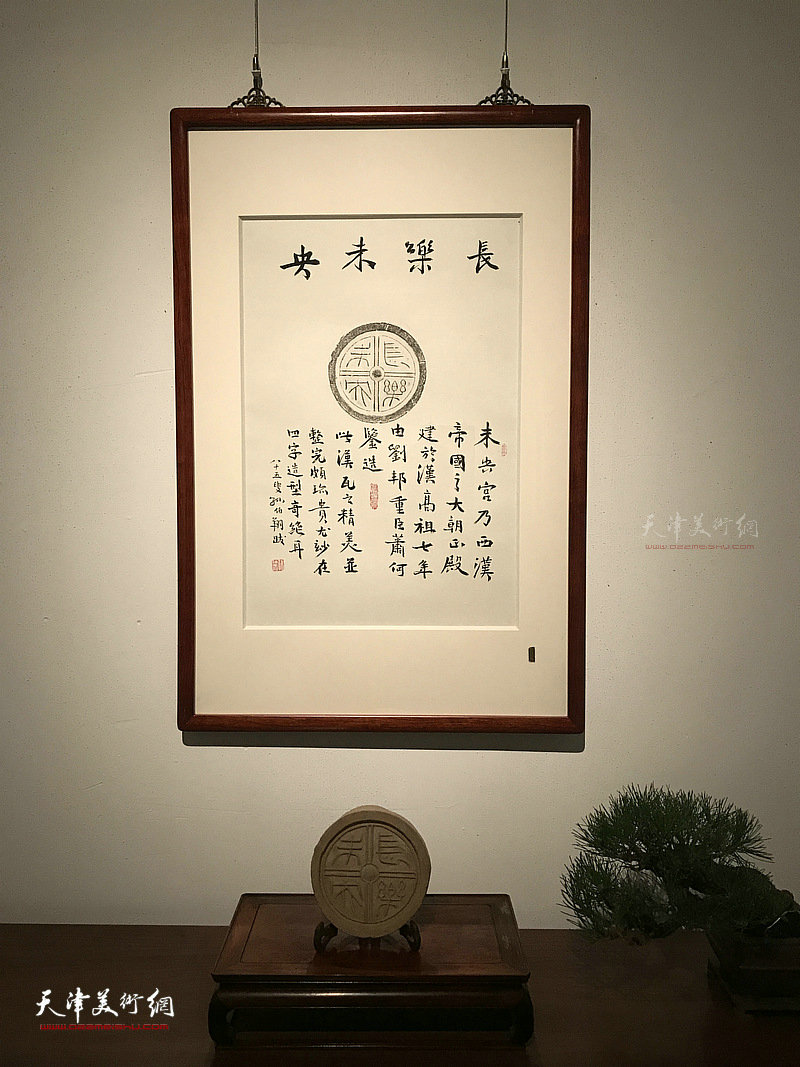 長樂未央
長樂未央
未央宮乃西漢
帝國之大朝正殿
建於漢高祖七年
由劉邦重臣蕭何
鑒造
此漢瓦之精美並
整完頗珍貴尤妙在
四字造型奇絕耳
八十五叟孫伯翔跋
長樂未央
天津美術網
www.022meishu.com
天津美術網
www.022meishu.com